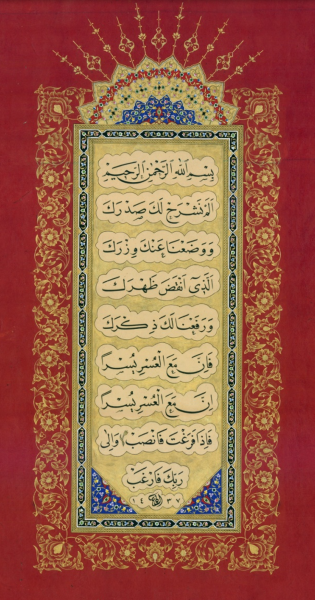 بِسْمِ اللهِ الرَّحْمٰنِ الرَّحِيمِ
اَلَمْ نَشْرَحْ لَكَ صَدْرَكَ
وَوَضَعْنَا عَنْكَ وِزْرَكَ
اَلَّذِي اَنْقَضَ ظَهْرَكَ
وَرَفَعْنَا لَكَ ذِكْرَكَ
فَاِنَّ مَعَ الْعُسْرِ يُسْرًا
اِنَّ مَعَ الْعُسْرِ يُسْرًا
فَاِذَا فَرَغْتَ فَانْصَبْ وَاِلٰى
رَبِّكَ فَارْغَبْ